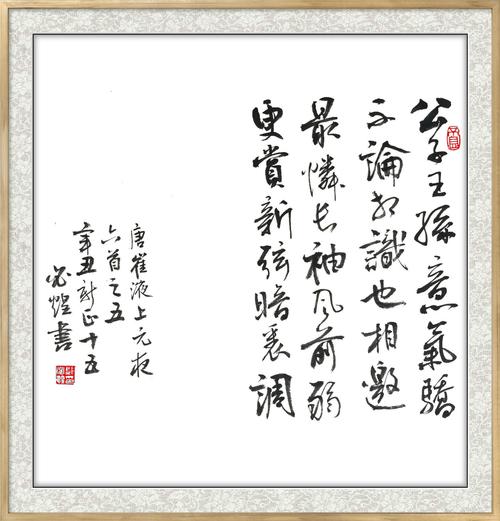 公子王孫意氣驕
不論相識也相邀
最憐長袖風前弱
更賞新弦暗裏調
唐崔液上元夜
六首之五
辛丑新正十五
煌書